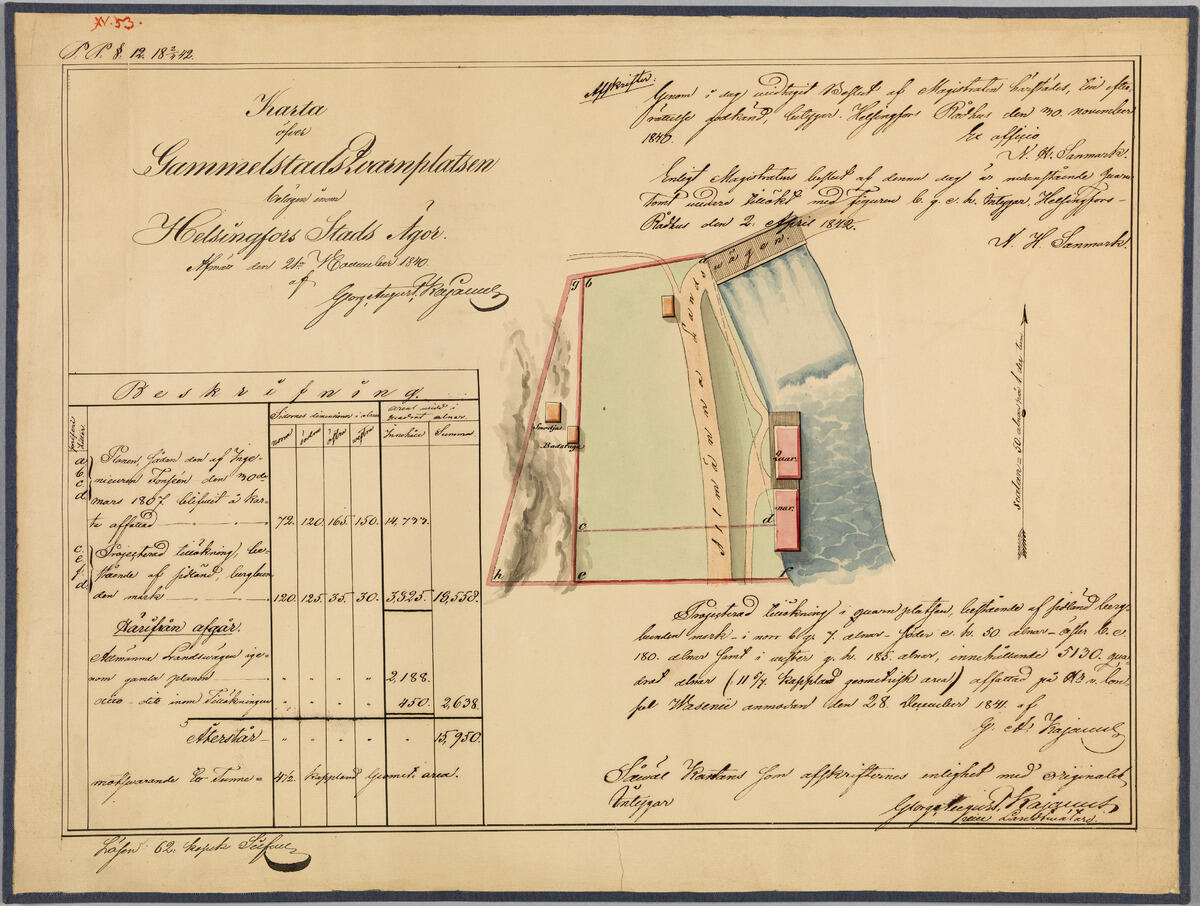 XV. 53.
P. P. §. 12. 18 2/4 42.
Karta
öfver
Gammelstads Qvarnplatsen
belägen inom
Helsingfors Stads Ägor.
Afmätt den 21 November 1840.
af
Georg August Kajanus
Afskrifter:
Genom i dag utslagit Beslut af Magistraten härstädes, till efter-
rättelse godkänd, betygar. Helsingfors Rådhus den 30 november
1840.
Ex officio
N. H. Sanmark.
Enligt Magistratens beslut af denna dag är nedanstående quarn
tomt vidare tillökt med figuren b. g. e. h. Intygar, Helsingfors
Rådhus den 2. April 1842.
N. H. Sanmark.
Beskrifning.
Sidornes dimentioner i alnar
Areal vidd i quadrat alnar.
norra
södra
östra
westra
Innehåll
Summa
a b c d
Planen, sådan den af Inge-
nieuren Tonseen den 30de
mars 1807 blifvit å Kar-
ta affattad 72. 120. 165. 150. 14,733.
c. e. f. d.
Projecterad tillökning, be-
stående af sidländ, bergbun
den mark 120. 125. 35. 30. 3,825. 18,558.
Härifrån afgår.
Allmänna Landsvägen ige-
nom gamla planen 2,188.
dito dito inom Tillökningen 450. 2,638.
Återstår 15,950.
motsvarande Ett Tunne= 4 1/2 kappland Geomet. area.
a
vägen.
g b
Allmänna Lands
Smedja
Badstuga
Quar
nar.
c d
h e f
Scalan = 50 alnar på 1 dec. tum
Projecterad tillökning i quarnplatsen, bestående af sidländ berg-
bunden mark i norr b. g. 7. alnar söder e. h. 50 alnar öster b. e.
180. alnar samt i wester g. h. 185. alnar, innehållande 5130 qua-
drat alnar (11 6/7. kappland geometrisk area) affattad på Hr v. Con-
sul Wasenii anmodan den 28. December 1841. af
G. A. Kajanus
Såväl Kartans som afskrifternes enlighet med originalet
Intygar
Georg August Kajanus
vice Landtmätare.
Lösen 62. kopek Silfver